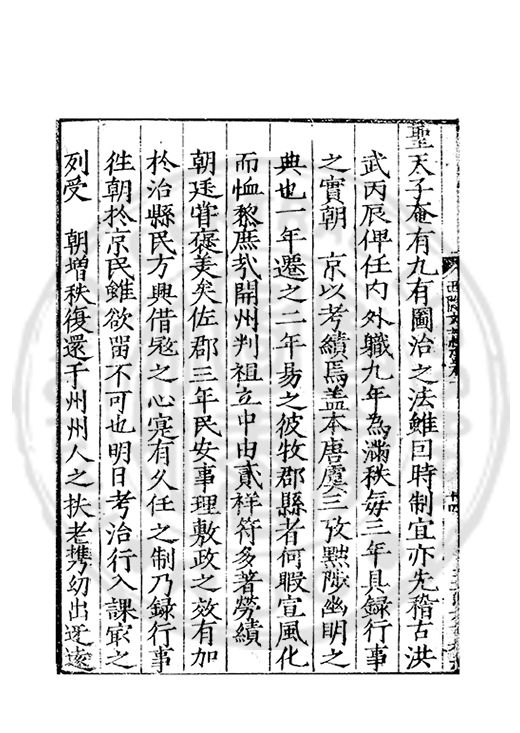 聖天子奄有九有圖治之法雖囙時制宜亦先稽古洪
武丙辰俾任内外職九年為滿秩毎三年具録行事
之實朝　京以考績焉盖本唐虞三攷黜陟幽明之
典也一年遷之二年易之彼牧郡縣者何暇宣風化
而恤黎庶㢤開州判祖立中由貳祥符多著勞績
朝廷甞褒美矣佐郡三年民安事理敷政之效有加
於治縣民方興借宼之心寔有久任之制乃録行事
徃朝於京民雖欲畱不可也明日考治行入課冣之
列受　朝增秩復還于州州人之扶老攜幼出迓遠